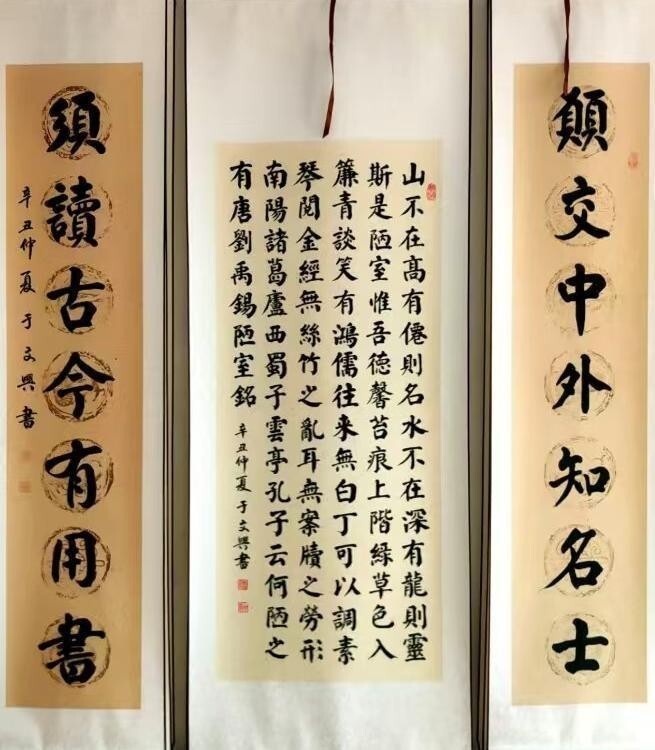 願交中外知名士
山不在髙有僊則名水不在深有龍則靈
斯是陋室惟吾德馨苔痕上階綠草色入
簾青談笑有鴻儒往來無白丁可以調素
琴閱金經無絲竹之亂耳無案牘之勞形
南陽諸葛廬西蜀子雲亭孔子云何陋之
有唐劉禹錫陋室銘
辛丑仲夏于文興書
須讀古今有用書
辛丑仲夏于文興書